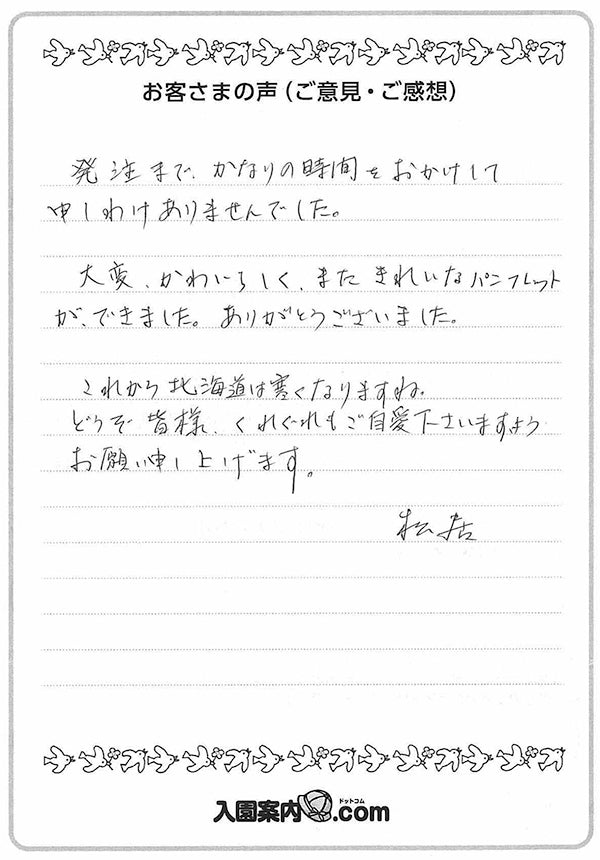 お客さまの声(ご意見・ご感想)
発注まで、かなりの時間をおかけして
申しわけありませんでした。
大変、かわいらしく、また きれいなパンフレット
が、できました。ありがとうございました。
これから北海道は寒くなりますね。
どうぞ皆様、くれぐれもご自愛下さいますよう
お願い申し上げます。
松居
入園案内.com
ドットコム